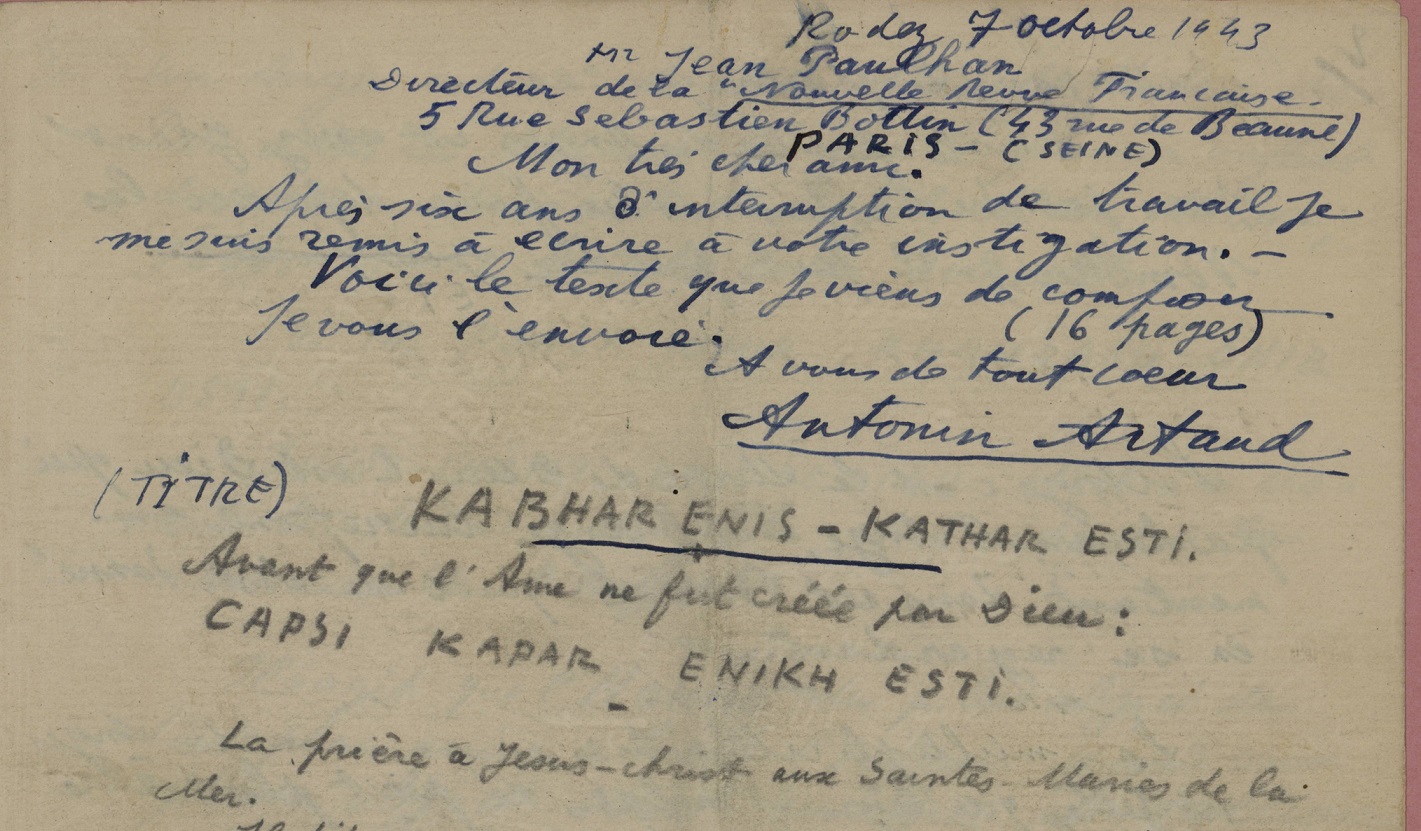 Rodez 7 octobre 1943
Mr Jean Paulhan
Directeur de la "Nouvelle Revue Française.
5 Rue Sebastien Bottin (43 rue de Beaune)
PARIS - (SEINE)
Mon très cher ami.
Après six ans d'interruption de travail je
me suis remis à écrire à votre instigation. -
Voici le texte que je viens de composer
(16 pages)
Je vous l'envoie.
A vous de tout coeur
Antonin Artaud
(TITRE)
KABHAR ENIS - KATHAR ESTI.
Avant que l'Ame ne fut créée par Dieu :
CAPSI KAPAR ENIKH ESTI.
-
La prière à Jesus-christ aux Saintes-Maries de la
Mer.